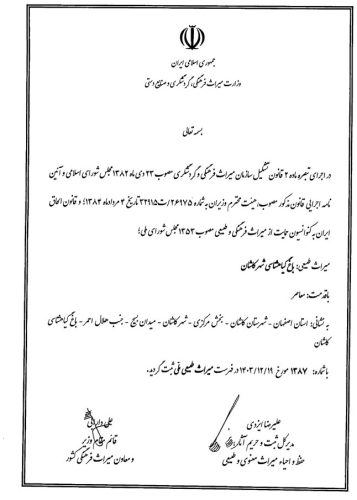 جمهوری اسلامی ایران
وزارت میراث فرهنگی، گردشگری و صنایع دستی
بسمه تعالی
در اجرای تبصره ماده ۲ قانون تشکیل سازمان میراث فرهنگی و گردشگری مصوب ۲۳ دی ماه ۱۳۸۲ مجلس شورای اسلامی و آئین
نامه اجرایی قانون مذکور مصوب هیئت محترم وزیران به شماره ۲۶۹۷۵/ت۳۲۹۱۵ تاریخ ۴ مردادماه ۱۳۸۴؛ و قانون الحاق
ایران به کنوانسیون حمایت از میراث فرهنگی و طبیعی مصوب ۱۳۵۳ مجلس شورای ملی؛
میراث طبیعی: باغ گیاهشناسی شهر کاشان
با قدمت: معاصر
به نشانی: استان اصفهان - شهرستان کاشان - بخش مرکزی - شهر کاشان - میدان بسیج - جنب هلال احمر - باغ گیاهشناسی
کاشان
با شماره: ۱۳۸۷ مورخ ۱۴۰۳/۱۲/۱۹ در فهرست میراث طبیعی ملی ثبت گردید.
علیرضا ایزدی
مدیرکل ثبت و حریم آثار و
حفظ و احیاء میراث معنوی و طبیعی
علی دارابی
قائم مقام وزیر
و معاون میراث فرهنگی کشور